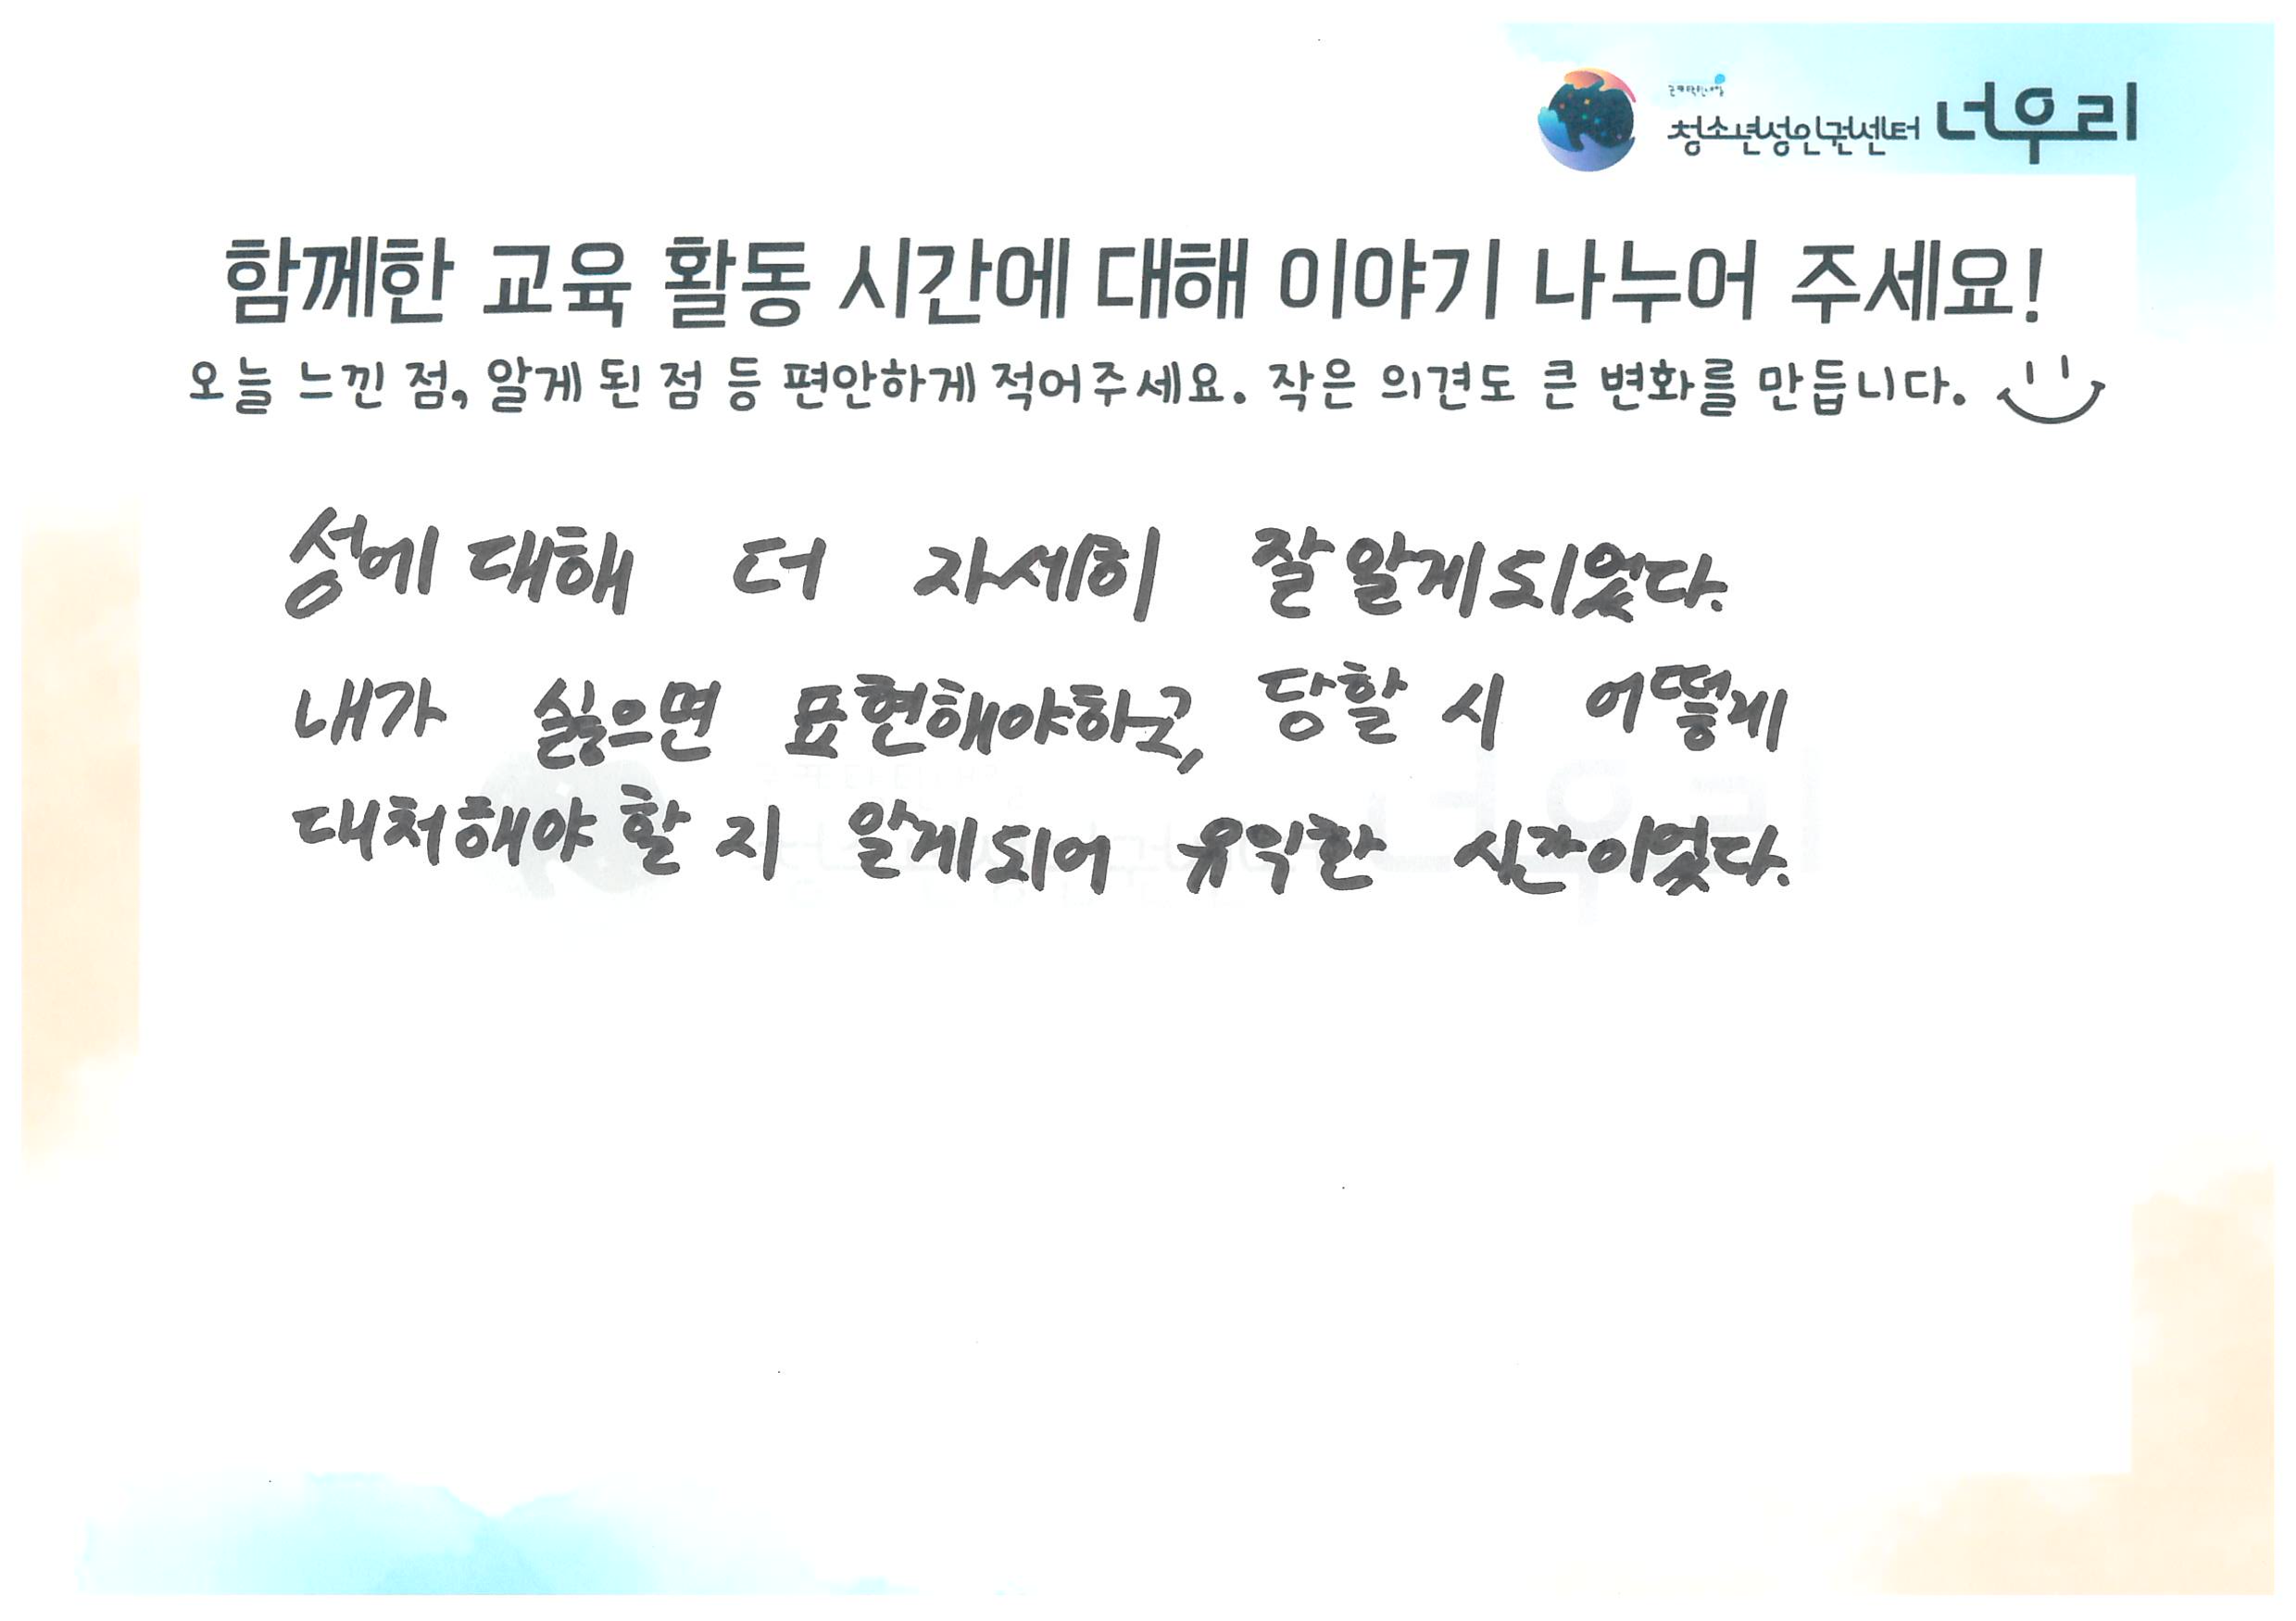 청소년성인권센터 너우리
함께한 교육 활동 시간에 대해 이야기 나누어 주세요!
오늘 느낀 점, 알게 된 점 등 편안하게 적어주세요. 작은 의견도 큰 변화를 만듭니다.
성에 대해 더 자세히 잘 알게되었다.
내가 싫으면 표현해야하고, 당할 시 어떻게
대처해야 할 지 알게되어 유익한 시간이었다.